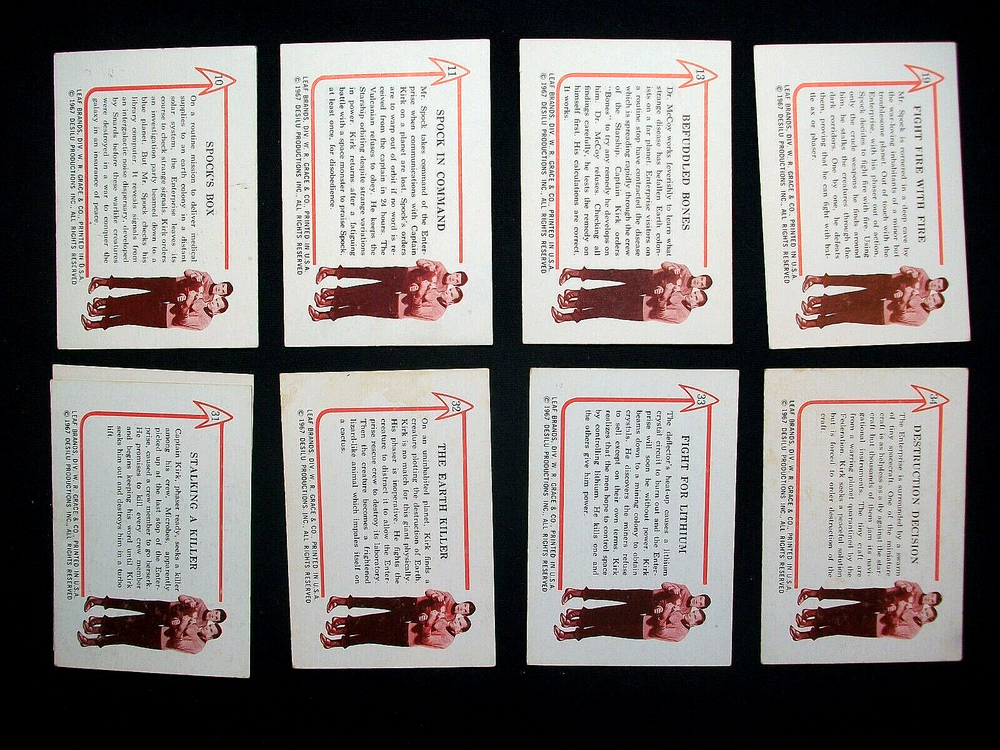 19
FIGHT FIRE WITH FIRE
Mr. Spock is cornered in a deep cave by
the war-loving inhabitants of a minor but
troublesome planet. Out of touch with the
Enterprise, with his phaser out of action,
Spock decides to fight fire with fire. Using
only the crude weapons he finds around
him, he stalks the creatures through the
dark corridors. One by one, he defeats
them, proving that he can fight with bat-
tle ax or phaser.
LEAF BRANDS, DIV. W. R. GRACE & CO., PRINTED IN U.S.A.
© 1967 DESILU PRODUCTIONS INC., ALL RIGHTS RESERVED
34
DESTRUCTION DECISION
The Enterprise is surrounded by a swarm
of tiny spacecraft. One of the miniature
craft is as helpless as a fly against the star-
craft but thousands of them jam its navi-
gational instruments. The tiny craft are
from a warring planet quarantined by the
Federation. Kirk seeks a peaceful solution
but is forced to order destruction of the
craft.
LEAF BRANDS, DIV. W. R. GRACE & CO., PRINTED IN U.S.A.
© 1967 DESILU PRODUCTIONS INC., ALL RIGHTS RESERVED
13
BEFUDDLED BONES
Dr. McCoy works feverishly to learn what
strange disease has befallen Earth colon-
ists on a far planet. Enterprise visitors on
a routine stop have contracted the disease
which is spreading rapidly through the crew
of the Starship. Captain Kirk orders
"Bones" to try any remedy he develops on
him. Dr. McCoy refuses. Checking all
findings carefully, he tests the remedy on
himself first. His calculations are correct.
It works.
LEAF BRANDS, DIV. W. R. GRACE & CO., PRINTED IN U.S.A.
© 1967 DESILU PRODUCTIONS INC., ALL RIGHTS RESERVED
33
FIGHT FOR LITHIUM
The deflector's heat-up causes a lithium
crystal circuit to burn out and the Enter-
prise will soon be without power. Kirk
beams down to a mining colony to obtain
crystals. He discovers the miners refuse
to sell except on their own terms. Kirk
realizes that the men hope to control space
by controlling lithium. He kills one and
the others give him power.
LEAF BRANDS, DIV. W. R. GRACE & CO., PRINTED IN U.S.A.
© 1967 DESILU PRODUCTIONS INC., ALL RIGHTS RESERVED
11
SPOCK IN COMMAND
Mr. Spock takes command of the Enter-
prise when communications with Captain
Kirk on a planet are lost. Spock's orders
are to warp out of orbit if no word is re-
ceived from the captain in 24 hours. The
Vulcanian refuses to obey. He keeps the
Starship orbiting despite strange variations
in power. Kirk returns after a fatiguing
battle with a space monster to praise Spock,
at least once, for disobedience.
LEAF BRANDS, DIV. W. R. GRACE & CO., PRINTED IN U.S.A.
© 1967 DESILU PRODUCTIONS INC., ALL RIGHTS RESERVED
32
THE EARTH KILLER
On an uninhabited planet, Kirk finds a
creature plotting the destruction of Earth
Kirk is no match for this giant physically.
His phaser is inoperative. He fights the
creature to distract it to allow the Enter-
prise rescue crew to destroy its laboratory.
Then the creature becomes a frightened
lizard-like animal which impales itself on
a cactus.
LEAF BRANDS, DIV. W. R. GRACE & CO., PRINTED IN U.S.A.
© 1967 DESILU PRODUCTIONS INC., ALL RIGHTS RESERVED
10
SPOCK'S BOX
On a routine mission to deliver medical
supplies to an earth colony in a distant
solar system, the Enterprise leaves its
course to check strange signals. Kirk orders
an investigation party beamed down to a
blue planet. Mr. Spock checks his
library computer. It reveals signals from
an intergalactic noise dispensary, developed
by Snards, before these warlike creatures
were destroyed in a war to conquer the
galaxy in an insurance of peace.
LEAF BRANDS, DIV. W. R. GRACE & CO., PRINTED IN U.S.A.
© 1967 DESILU PRODUCTIONS INC., ALL RIGHTS RESERVED
31
STALKING A KILLER
Captain Kirk, phaser ready, seeks a killer
among his crew. Microbes, apparently
picked up at the last stop of the Enter-
prise, caused a crew member to go berserk.
He promises to kill every crew member
and begins keeping his word until Kirk
seeks him out and destroys him in a turbo
lift.
LEAF BRANDS, DIV. W. R. GRACE & CO., PRINTED IN U.S.A.
© 1967 DESILU PRODUCTIONS INC., ALL RIGHTS RESERVED